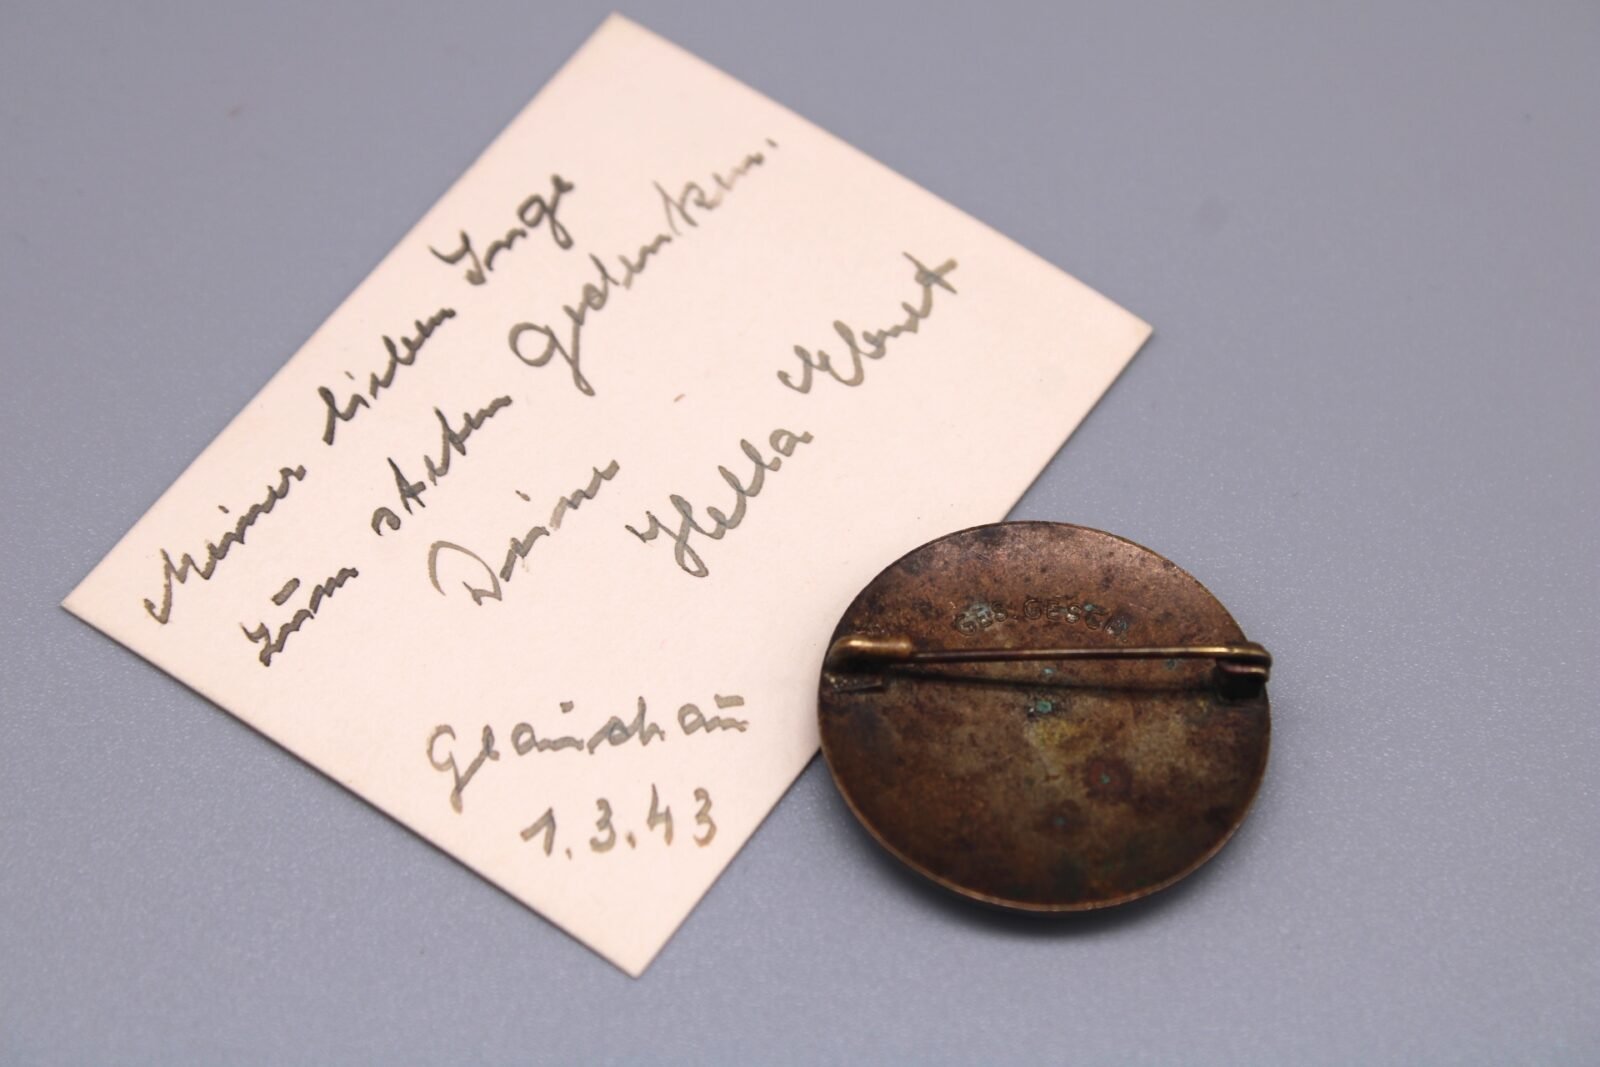 Meiner lieben Inge
zum steten Gedenken.
Deine
Hella
Glauchau
1.3.43
GES. GESCH